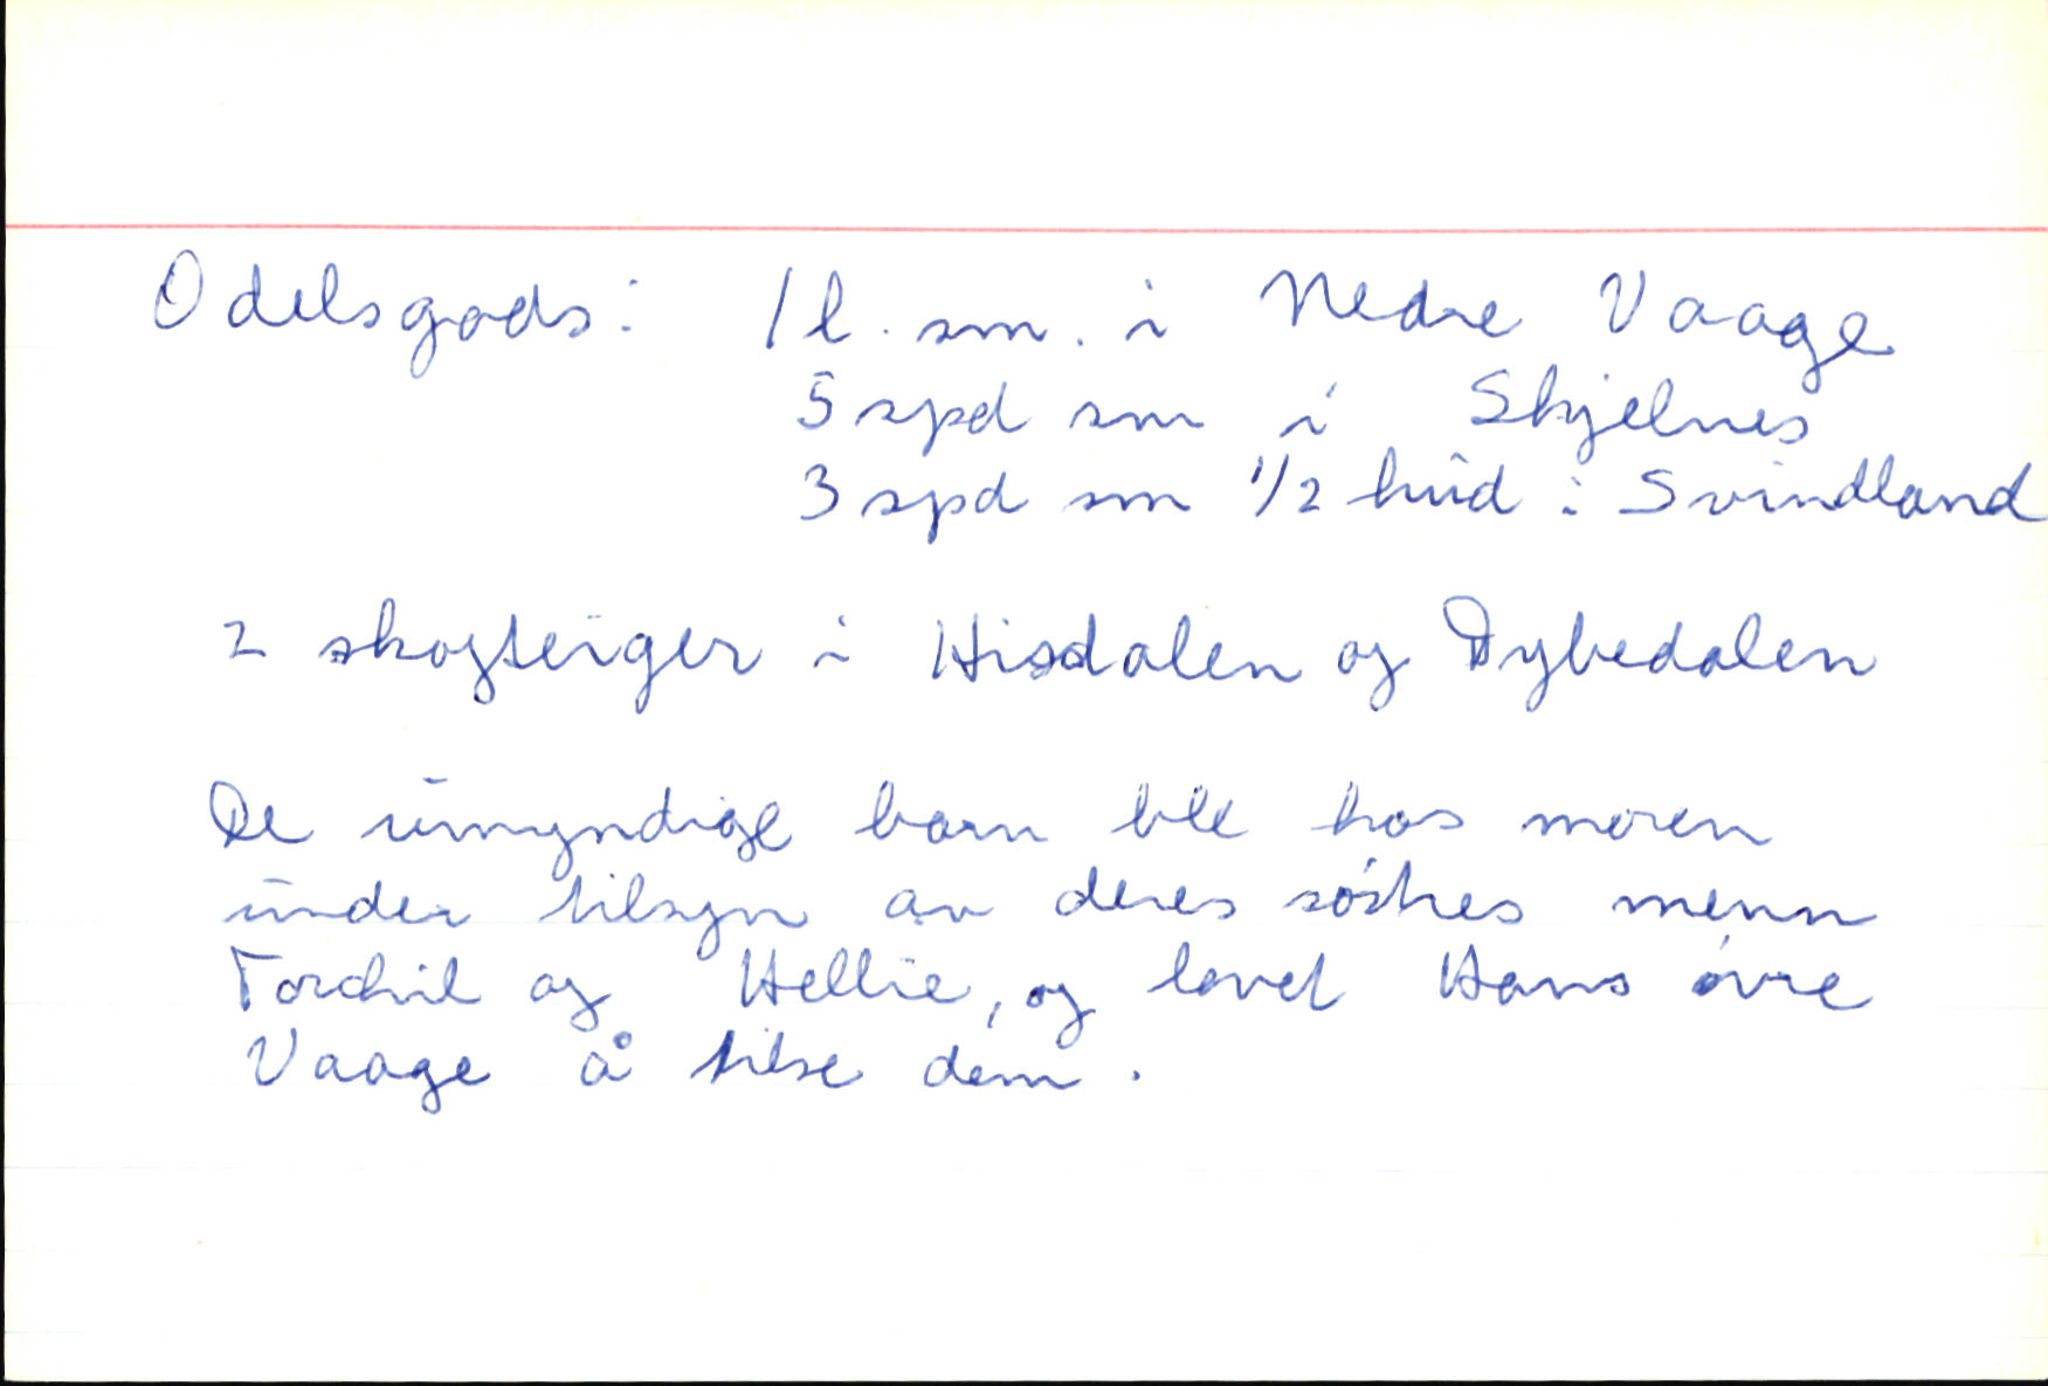 Odelsgods: 1 l. sm. i Nedre Vaage
5 spd sm i Skjelnes
3 spd sm 1/2 hud i Svindland
2 skogteiger i Hisdalen og Dybedalen
De umyndige barn ble hos moren
under tilsyn av deres søstres menn
Tordhil og Hellie, og lovet Hans øvre
Vaage å tilse dem.